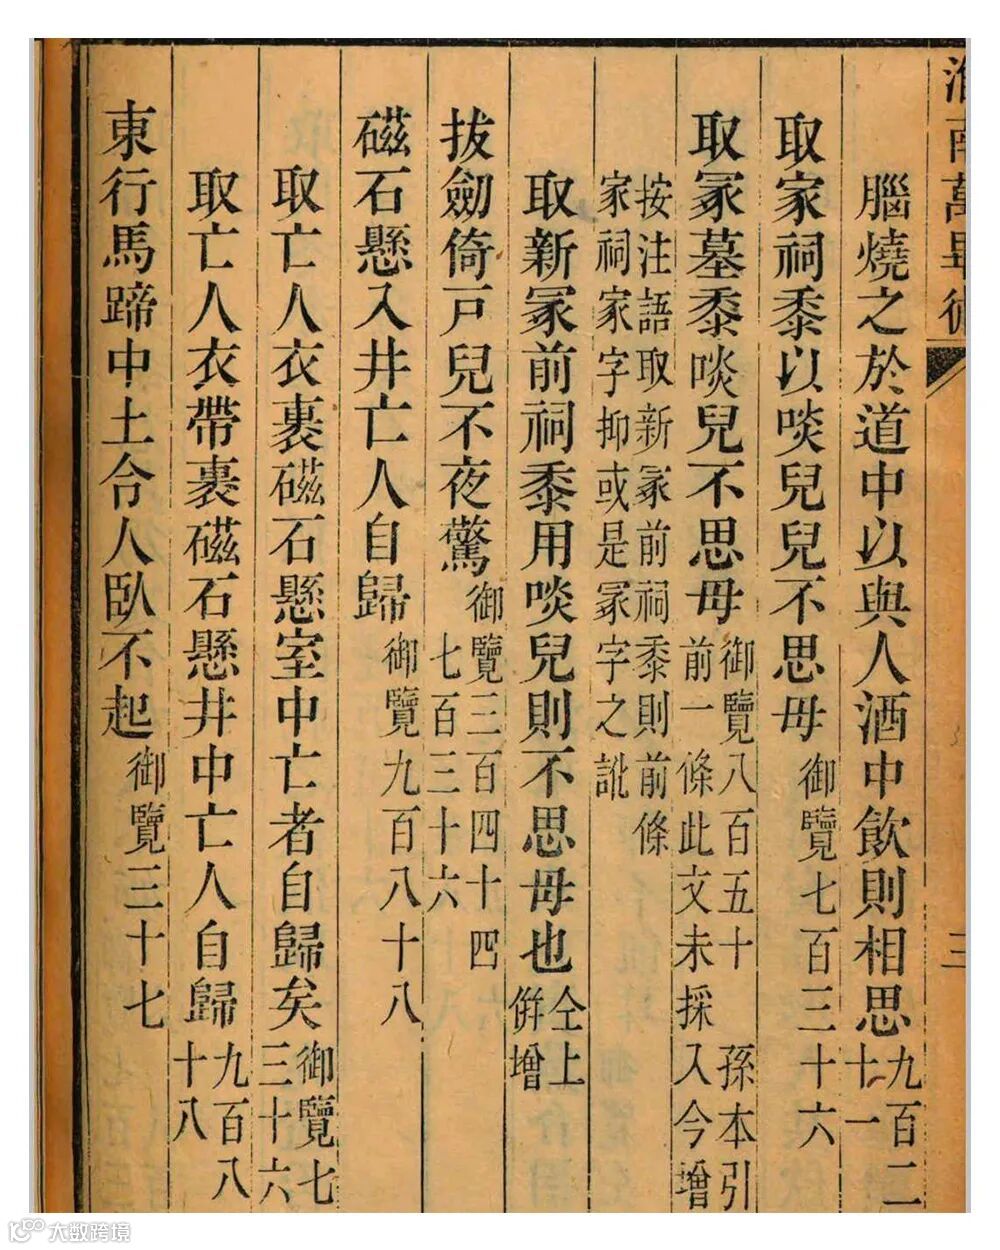 淮南萬畢術 三
腦燒之於道中以與人酒中飲則相思九百二
十一
取家祠黍以啖兒兒不思母御覽七百三十六
取冢墓黍啖兒不思母御覽八百五十 孫本引
前一條此文未採入今增
按注語取新冢前祠黍則前條
家祠家字抑或是冢字之訛
取新冢前祠黍用啖兒則不思母也仝上
倂增
拔劒倚戶兒不夜驚御覽三百四十四
七百三十六
磁石懸入井亡人自歸御覽九百八十八
取亡人衣裹磁石懸室中亡者自歸矣御覽七
三十六
取亡人衣帶裹磁石懸井中亡人自歸九百八
十八
東行馬蹄中土令人臥不起御覽三十七
大数跨境